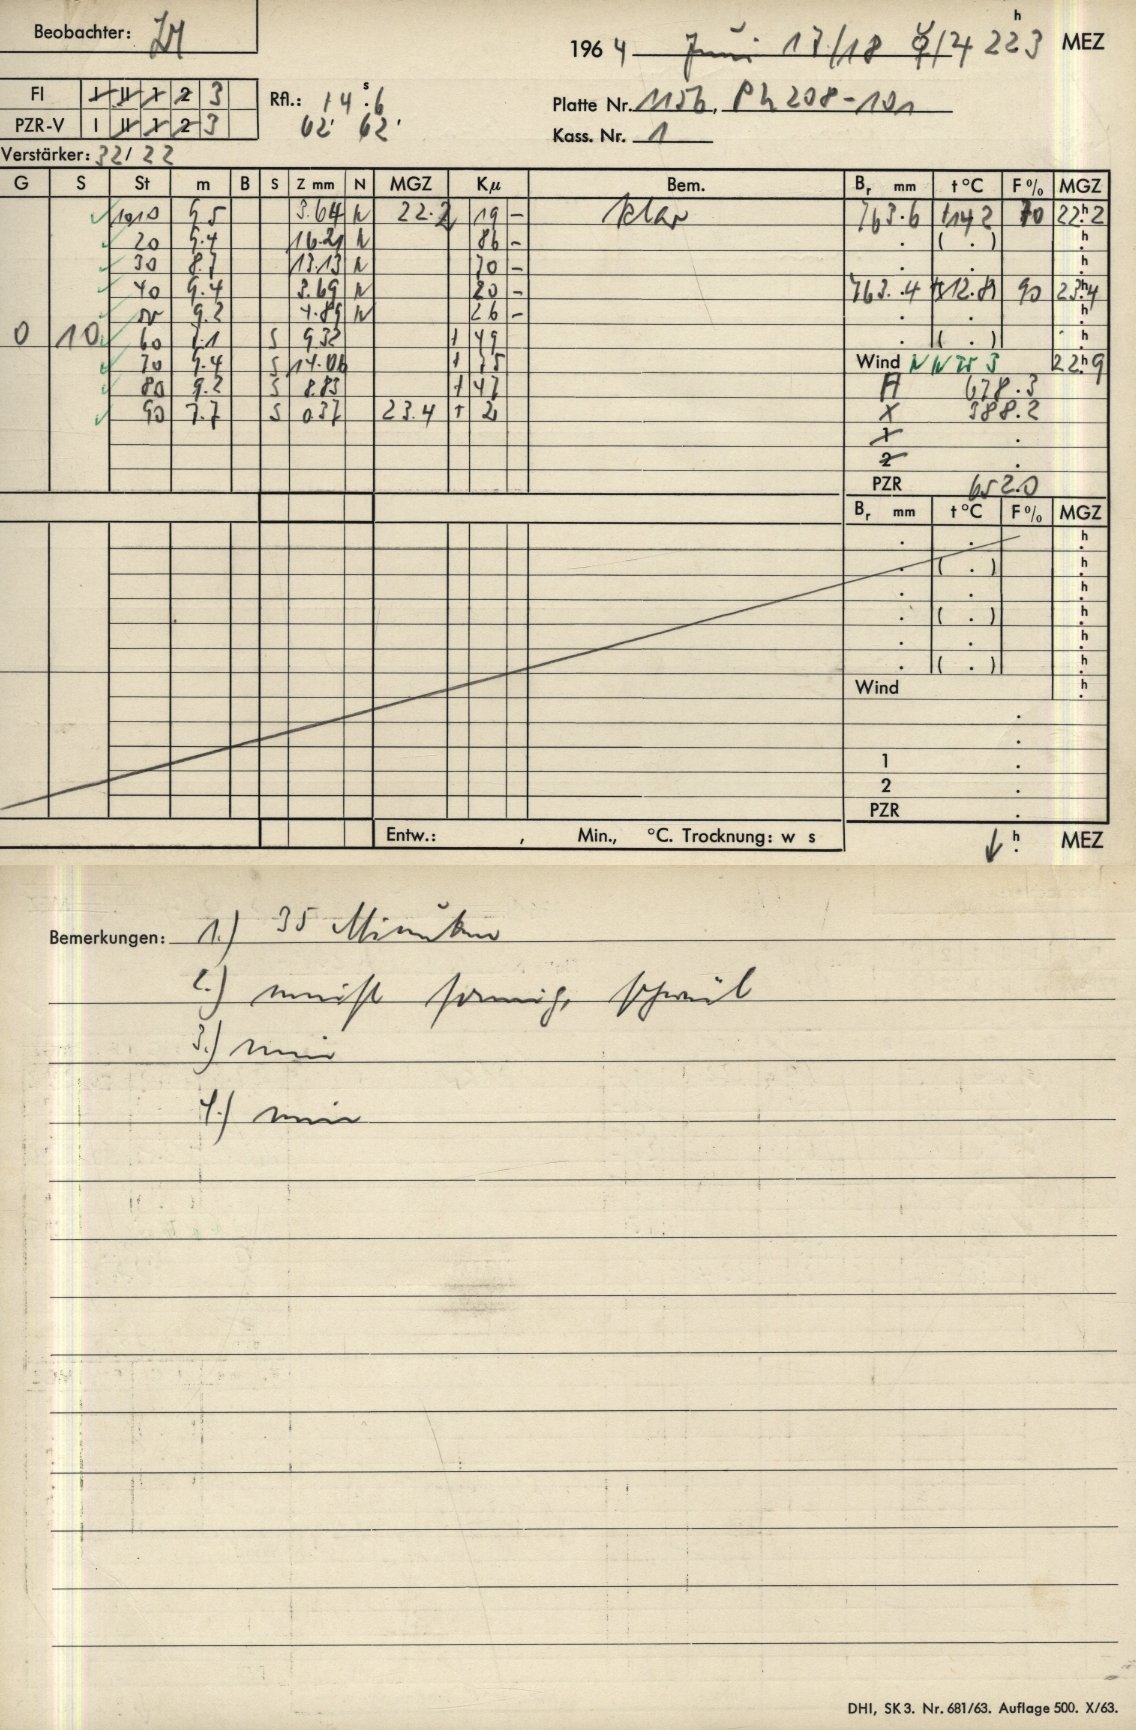 Beobachter:
1964 Juni 17/18 ☿/♃ 22h3 MEZ
FI I II 1 2 3
PZR-V I II 1 2 3
Rfl.: 14s.6
62' 62'
Platte Nr. 1156, Ph 208-101
Kass. Nr. 1
Verstärker: 32/22
G S St m B S Z mm N MGZ Kμ Bem. Br mm t °C F % MGZ
1010 9.5 3.64 N 22.2 19 - klar 763.6 +14.2 70 22h2
20 9.4 16.21 N 86 - . ( . ) h
30 8.7 13.13 N 70 - . . h
40 9.4 3.69 N 20 - 763.4 +12.8 90 23h4
9.2 4.89 N 26 - . . h
0 10 60 7.1 S 9.32 + 49 . ( . ) h
70 9.4 S 14.06 + 75 Wind NNW 3 22h9
80 9.2 S 8.83 + 47 FI 678.3
90 7.7 S 0.37 23.4 + 2 X 388.2
1 .
2 .
PZR 652.0
Br mm t °C F % MGZ
. . h
. ( . ) h
. . h
. ( . ) h
. . h
. ( . ) h
Wind h
.
.
1 .
2 .
PZR .
Entw.: , Min., °C. Trocknung: w s
↓ h. MEZ
Bemerkungen: 1.) 35 Minuten
2.) meist sonnig, schwül
3.) nein
4.) nein
DHI, SK 3. Nr. 681/63. Auflage 500. X/63.